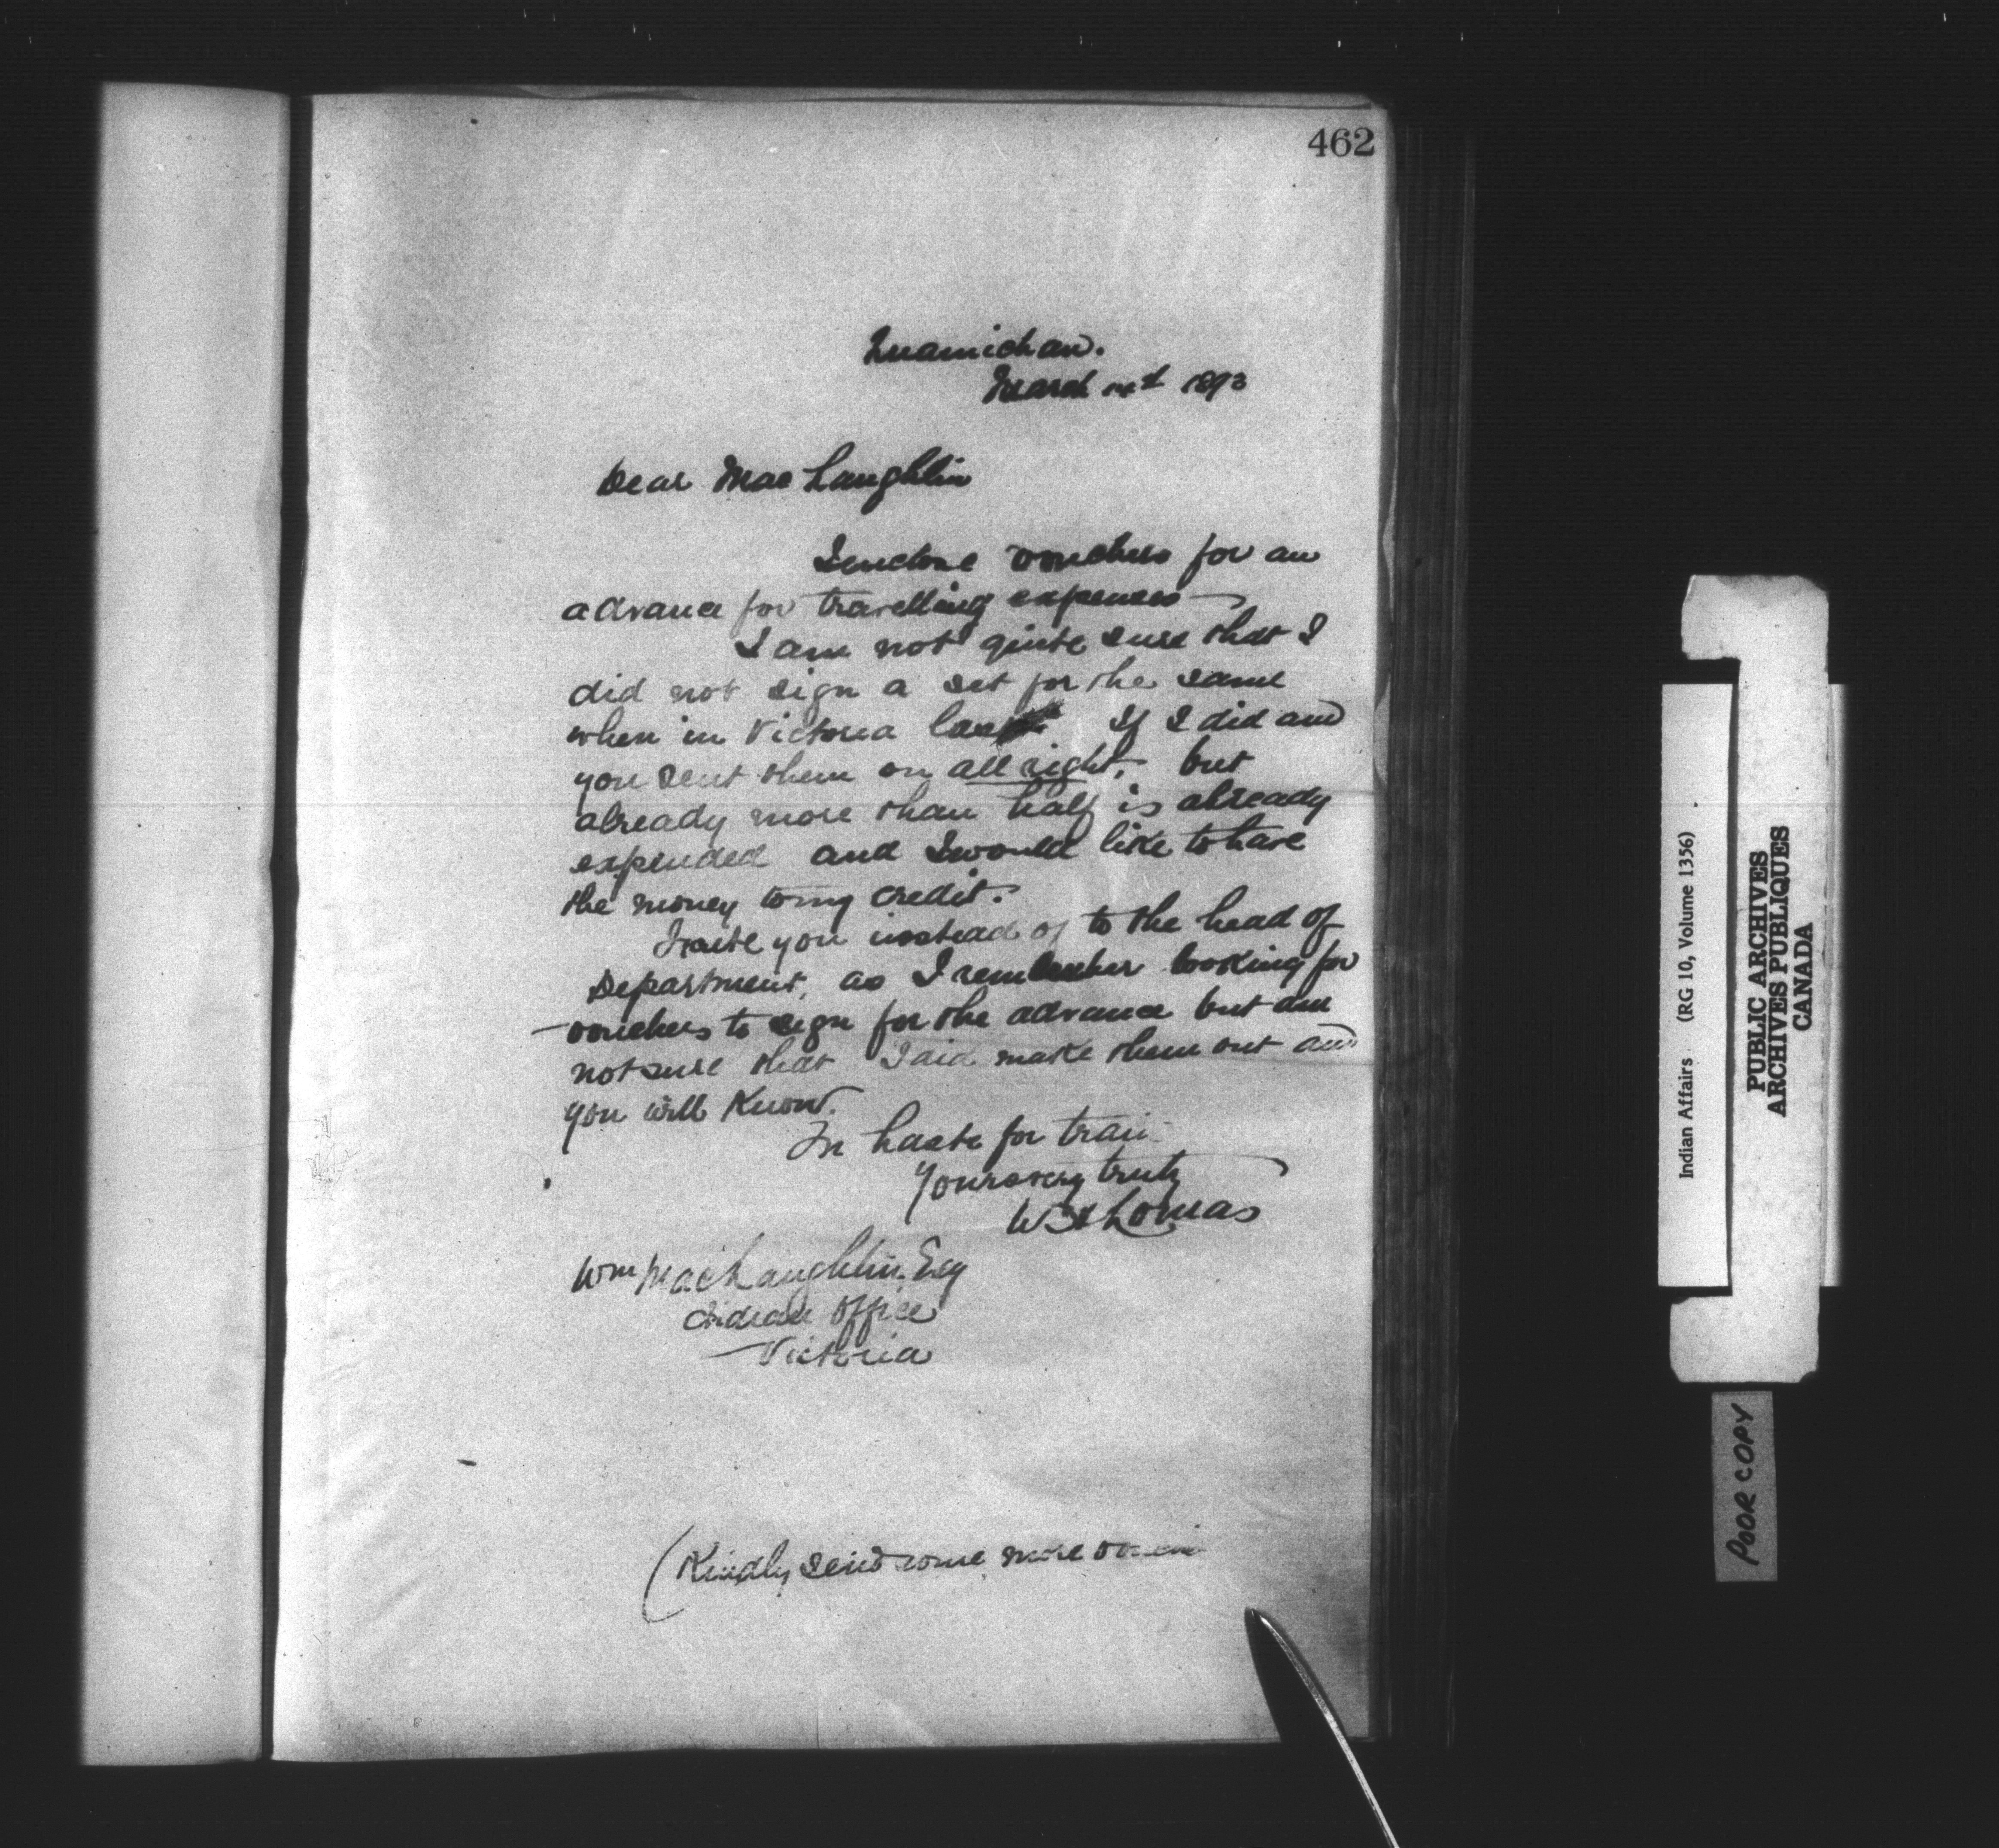 462
Quamichan.
March 14th 1893
Dear MacLaughlin
I enclose vouchers for an
advance for travelling expenses
I am not quite sure that I
did not sign a set for the same
when in Victoria last If I did and
you sent them on all right, but
already more than half is already
expended and I would like to have
the money to my credit.
I write you instead of to the head of
Department, as I remember looking for
vouchers to sign for the advance but am
not sure that I did make them out and
you will know.
In haste for train
Yours very truly
W H Lomas
Wm MacLaughlin Esq
Indian Office
Victoria
(Kindly send some more
Indian Affairs (RG 10, Volume 1356)
PUBLIC ARCHIVES
ARCHIVES PUBLIQUES
CANADA
POOR COPY